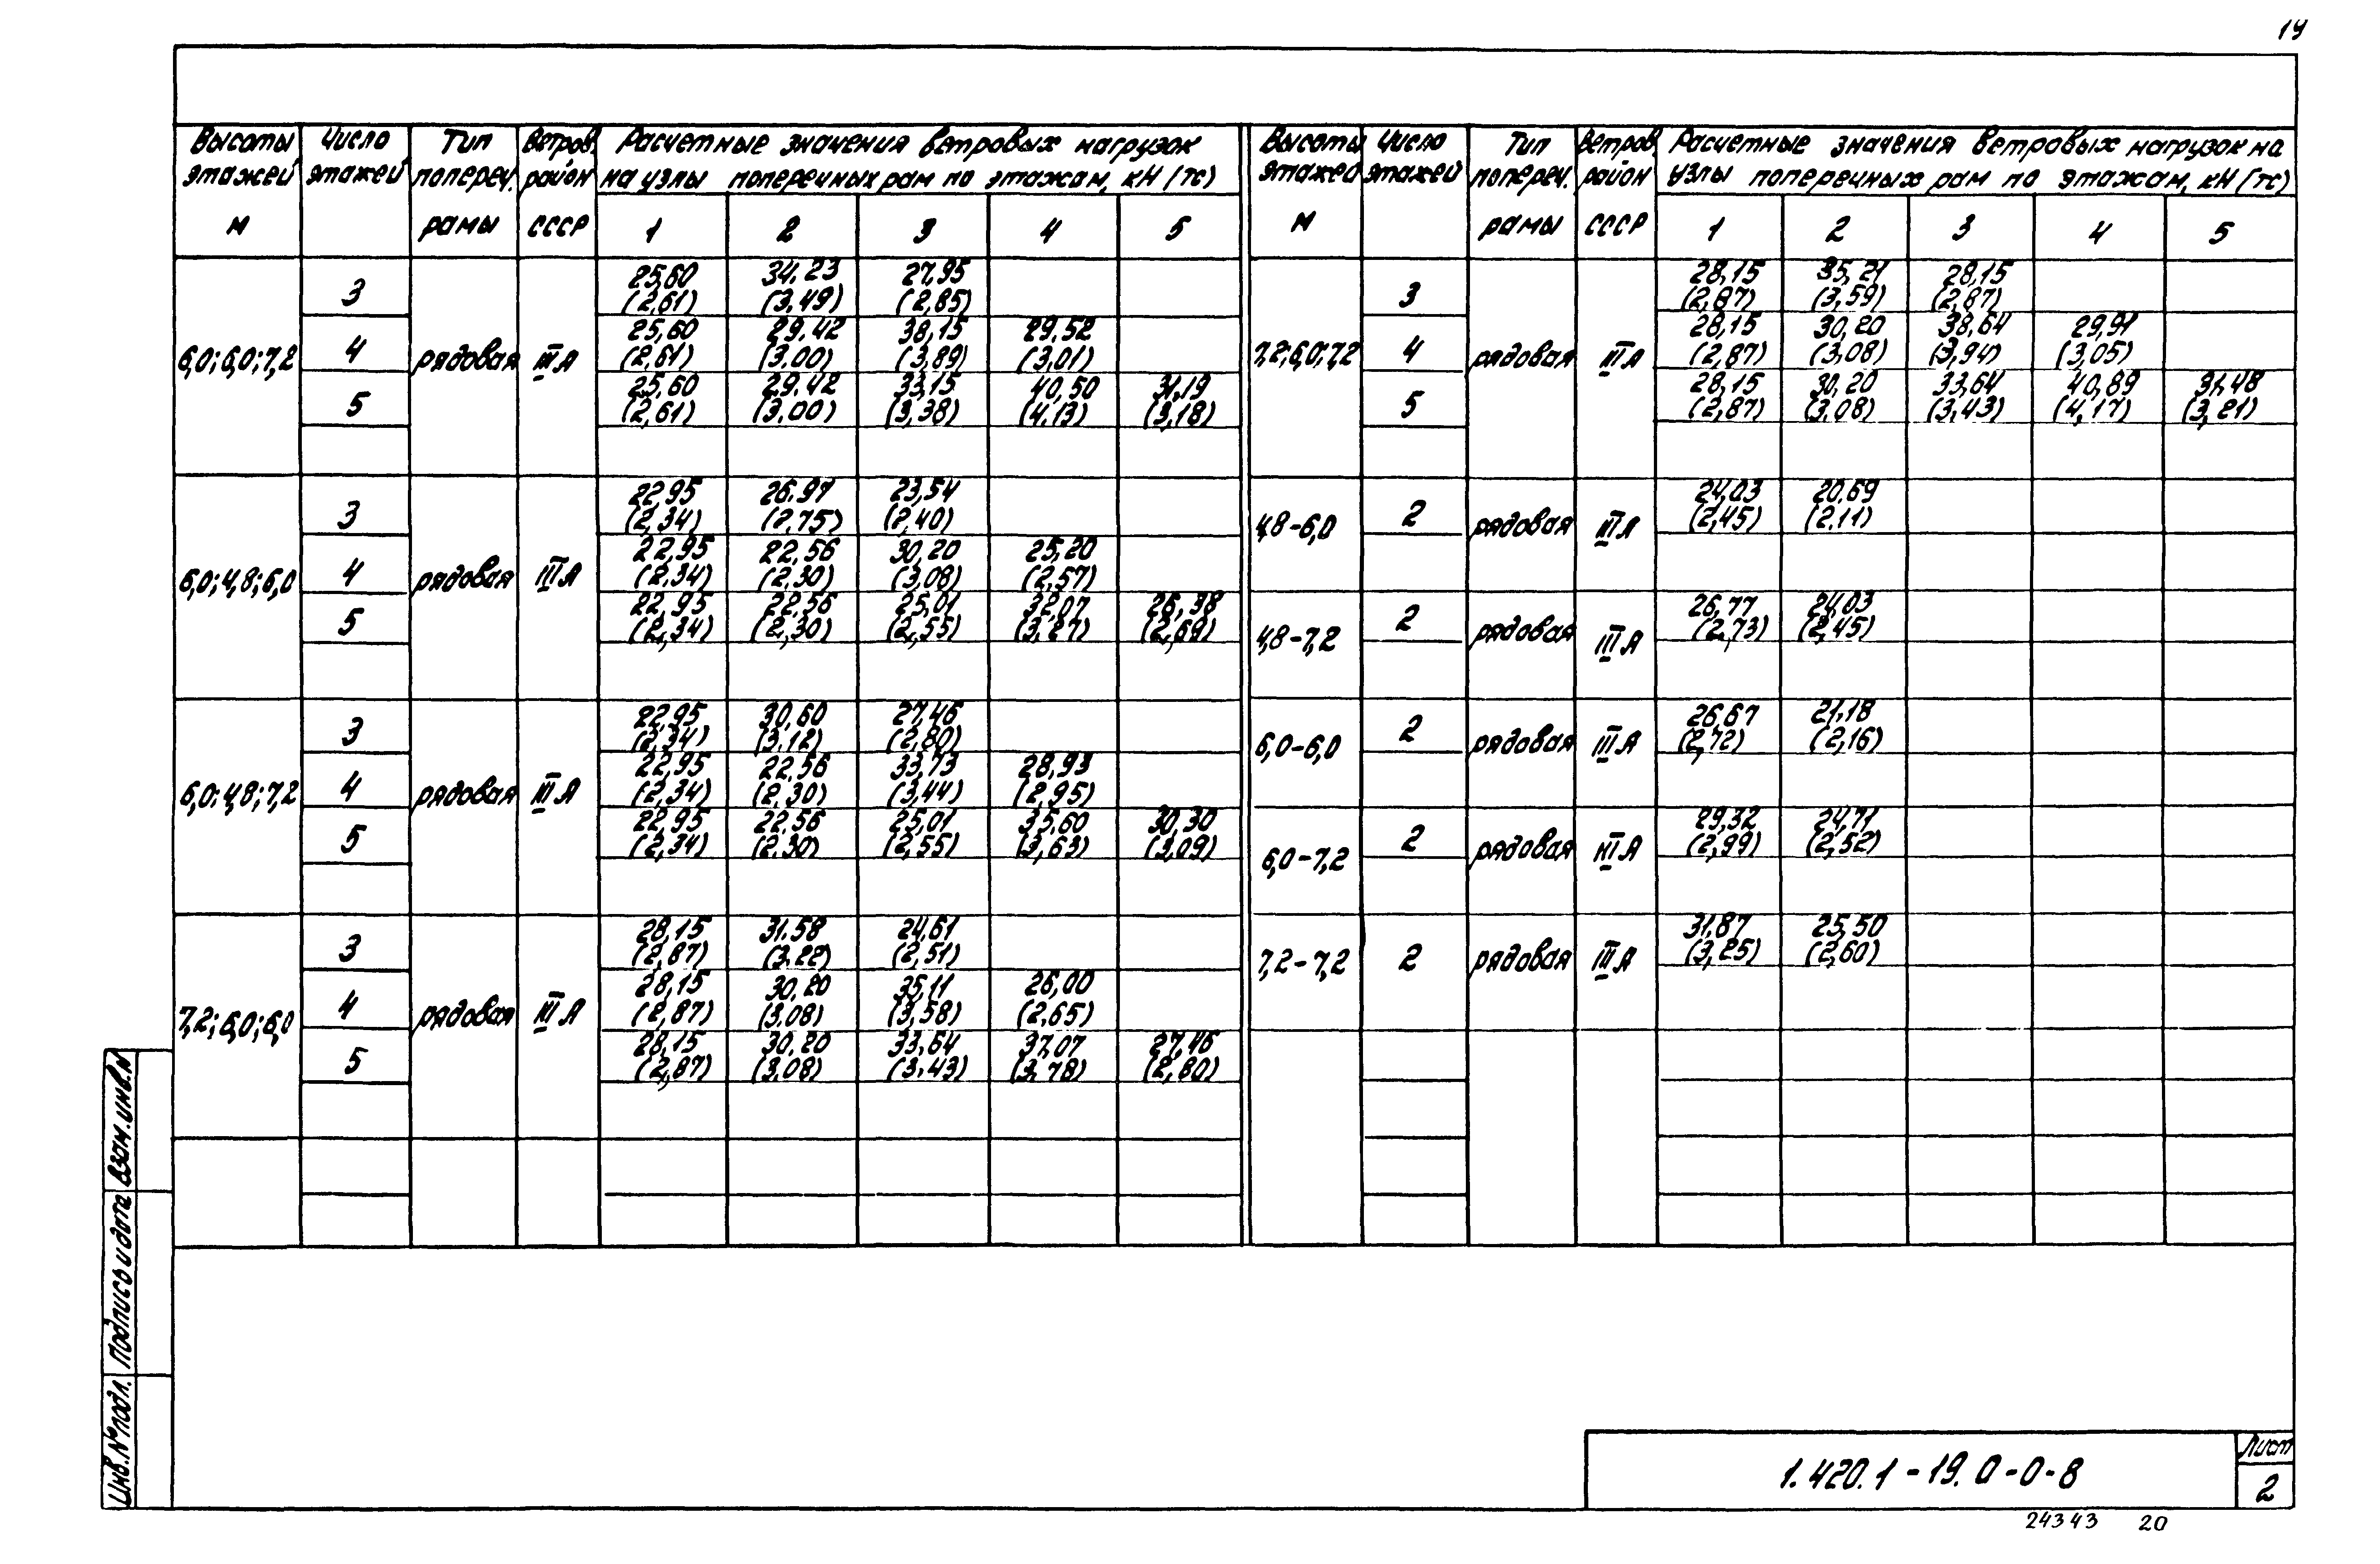 19
Высоты этажей м | Число этажей | Тип попереч. рамы | Ветров. район СССР | Расчетные значения ветровых нагрузок на узлы поперечных рам по этажам, кН (тс)
1 | 2 | 3 | 4 | 5
6,0; 6,0; 7,2 | рядовая | III А
3 | 25,60 (2,61) | 34,23 (3,49) | 27,95 (2,85)
4 | 25,60 (2,61) | 29,42 (3,00) | 38,15 (3,89) | 29,52 (3,01)
5 | 25,60 (2,61) | 29,42 (3,00) | 33,15 (3,38) | 40,50 (4,13) | 31,19 (3,18)
6,0; 4,8; 6,0 | рядовая | III А
3 | 22,95 (2,34) | 26,97 (2,75) | 23,54 (2,40)
4 | 22,95 (2,34) | 22,56 (2,30) | 30,20 (3,08) | 25,20 (2,57)
5 | 22,95 (2,34) | 22,56 (2,30) | 25,01 (2,55) | 32,07 (3,27) | 26,38 (2,69)
6,0; 4,8; 7,2 | рядовая | III А
3 | 22,95 (2,34) | 30,60 (3,12) | 27,46 (2,80)
4 | 22,95 (2,34) | 22,56 (2,30) | 33,73 (3,44) | 28,93 (2,95)
5 | 22,95 (2,34) | 22,56 (2,30) | 25,01 (2,55) | 35,60 (3,63) | 30,30 (3,09)
7,2; 6,0; 6,0 | рядовая | III А
3 | 28,15 (2,87) | 31,58 (3,22) | 24,61 (2,51)
4 | 28,15 (2,87) | 30,20 (3,08) | 35,11 (3,58) | 26,00 (2,65)
5 | 28,15 (2,87) | 30,20 (3,08) | 33,64 (3,43) | 37,07 (3,78) | 27,46 (2,80)
Высоты этажей м | Число этажей | Тип попереч. рамы | Ветров. район СССР | Расчетные значения ветровых нагрузок на узлы поперечных рам по этажам, кН (тс)
1 | 2 | 3 | 4 | 5
7,2; 6,0; 7,2 | рядовая | III А
3 | 28,15 (2,87) | 35,21 (3,59) | 28,15 (2,87)
4 | 28,15 (2,87) | 30,20 (3,08) | 38,64 (3,94) | 29,91 (3,05)
5 | 28,15 (2,87) | 30,20 (3,08) | 33,64 (3,43) | 40,89 (4,17) | 31,48 (3,21)
4,8-6,0 | 2 | рядовая | III А | 24,03 (2,45) | 20,69 (2,11)
4,8-7,2 | 2 | рядовая | III А | 26,77 (2,73) | 24,03 (2,45)
6,0-6,0 | 2 | рядовая | III А | 26,67 (2,72) | 21,18 (2,16)
6,0-7,2 | 2 | рядовая | III А | 29,32 (2,99) | 24,71 (2,52)
7,2-7,2 | 2 | рядовая | III А | 31,87 (3,25) | 25,50 (2,60)
Инв. № подл. | Подпись и дата | Взам. инв. №
1.420.1-19.0-0-8
Лист
2
24343 20